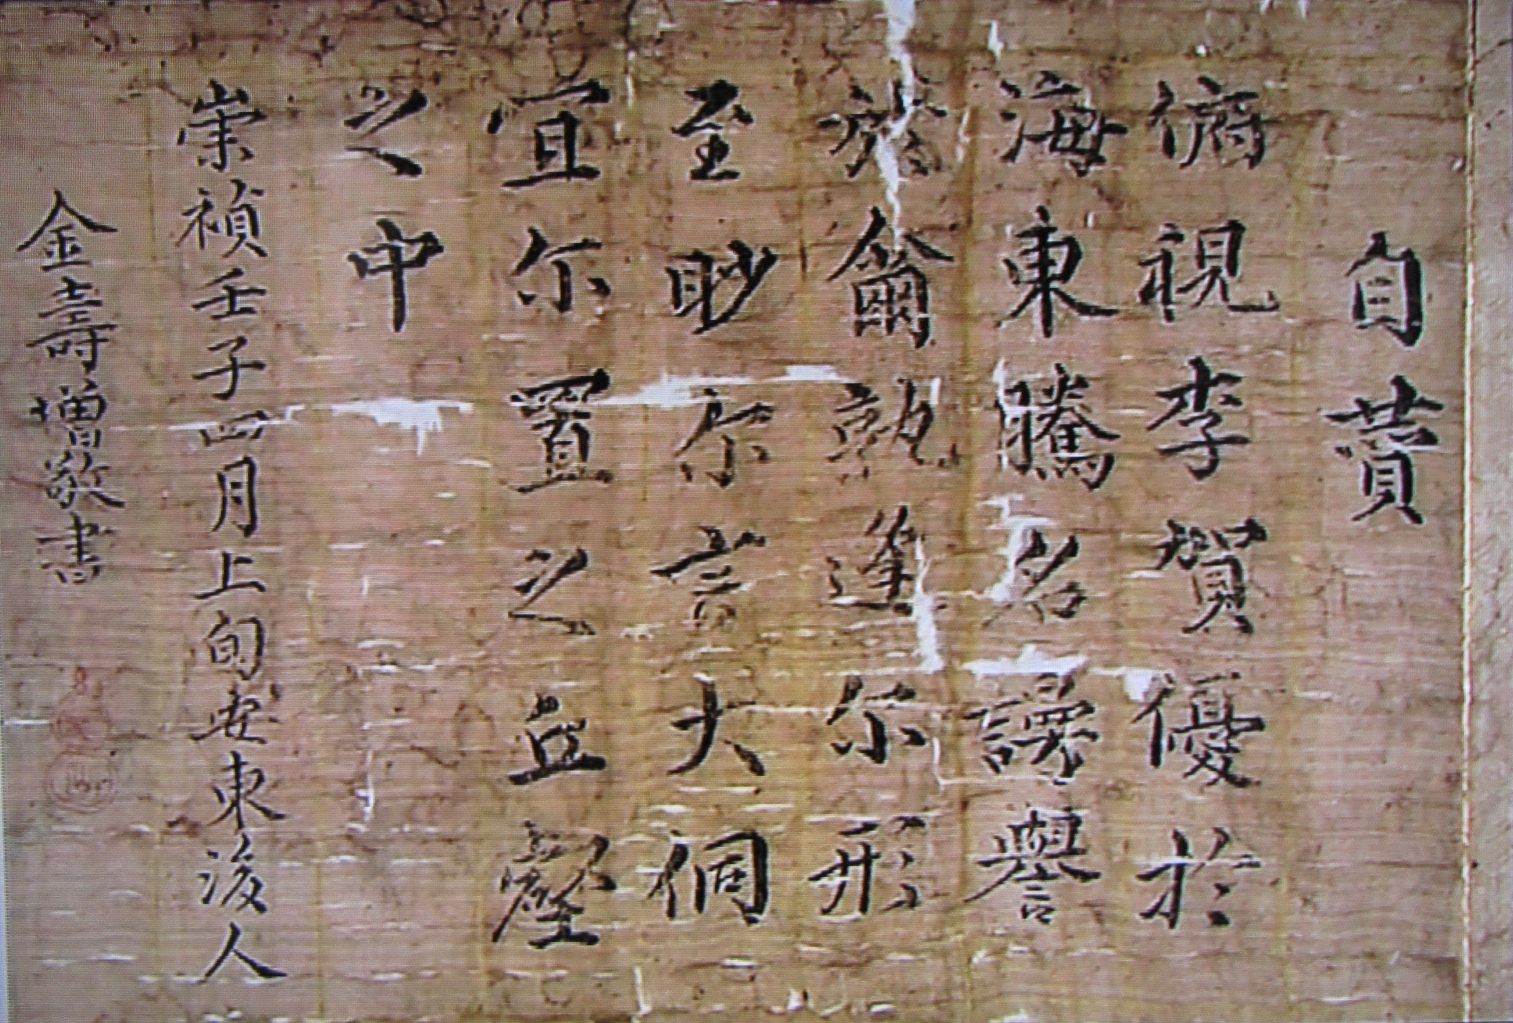 自贊
俯視李賀優於
海東騰名謾譽
於爾孰逢尔形
至眇尔言大侗
宜尔置之丘壑
之中
崇禎壬子四月上旬安東後人
金壽增敬書